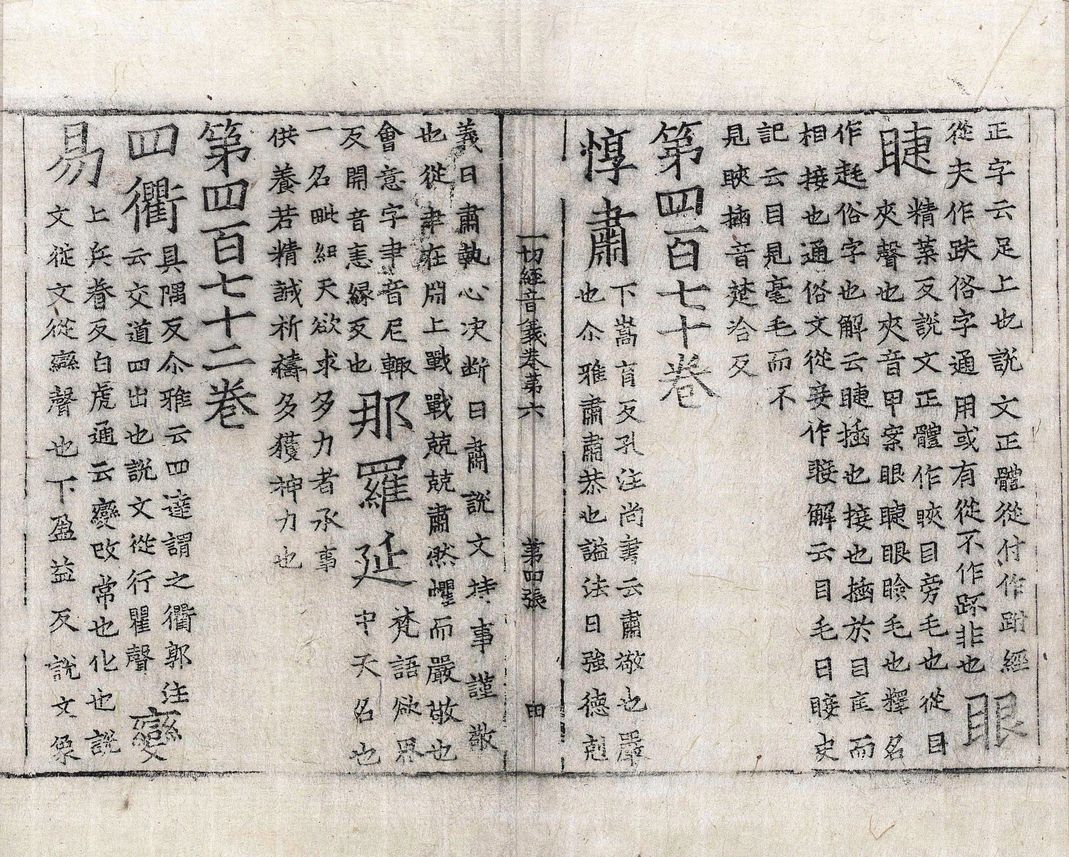 正字云足上也說文正體從付作跗經
從夫作趺俗字通用或有從不作䟔非也
眼
睫
精葉反說文正體作䀹目旁毛也從目
夾聲也夾音甲案眼睫眼瞼毛也釋名
作䞨俗字也解云睫揷也接也揷於目眶而
相接也通俗文從妾作䀹解云目毛曰䀹史
記云目見毫毛而不
見䀹揷音楚洽反
第四百七十卷
惇肅
下嵩育反孔注尚書云肅敬也嚴
也尒雅肅肅恭也謚法曰強德剋
一切經音義卷第六
第四張
田
義曰肅執心決断曰肅說文持事謹敬
也從聿在𣶒上戰戰兢兢肅然懼而嚴敬也
會意字聿音尼輒
反開音恚緣反也
那羅延
梵語欲界
中天名也
一名毗紐天欲求多力者承事
供養若精誠祈禱多獲神力也
第四百七十二卷
四衢
具隅反尒雅云四達謂之衢郭注
云交道四出也說文從行瞿聲
變
易
上兵眷反白虎通云變改常也化也說
文從文從䜌聲也下盈益反說文象